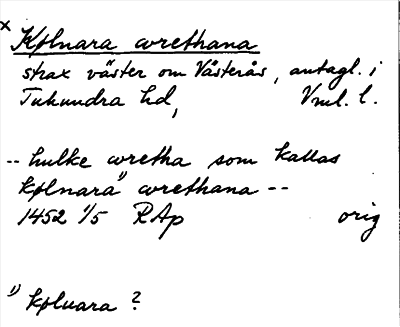 x
Kølnara wrethana
strax väster om Västerås, antagl. i
Tuhundra hd, Vml. l.
-- hulke wretha som kallas
kølnara¹⁾ wrethana --
1452 1/5 RAp orig
¹⁾ køluara ?